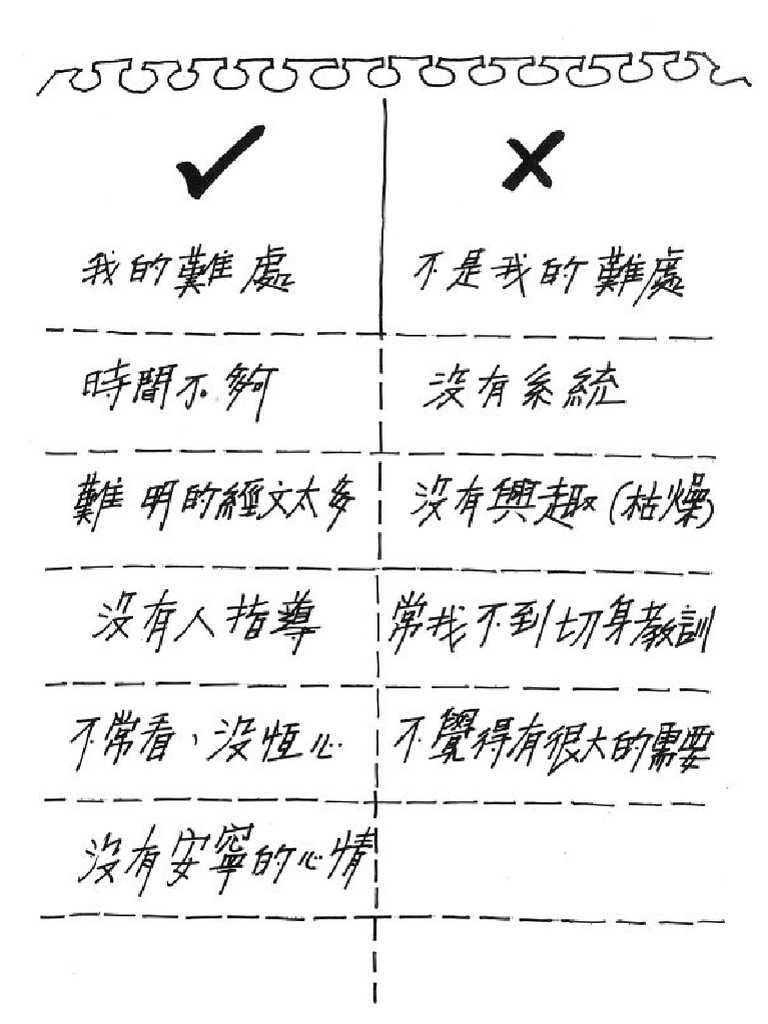 ✓ ✗
我的難處 不是我的難處
時間不夠 沒有系統
難明的經文太多 沒有興趣(枯燥)
沒有人指導 常找不到切身教訓
不常看、沒恆心 不覺得有很大的需要
沒有安寧的心情